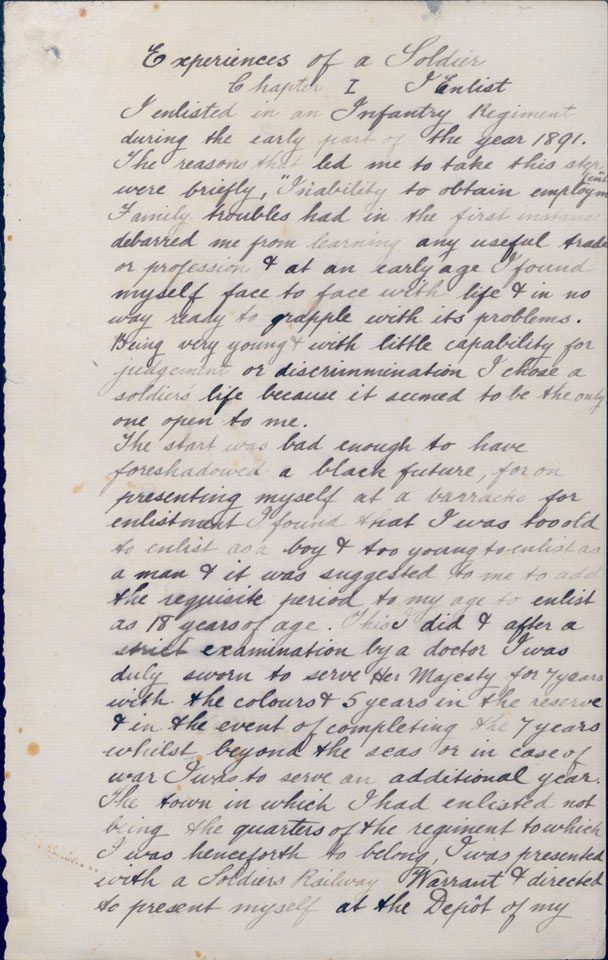 Experiences of a Soldier
Chapter I I Enlist
I enlisted in an Infantry Regiment
during the early part of the year 1891.
The reasons that led me to take this step
were briefly, "Inability to obtain employment
Family troubles had in the first instance
debarred me from learning any useful trade
or profession & at an early age I found
myself face to face with life & in no
way ready to grapple with its problems.
Being very young & with little capability for
judgement or discrummination I chose a
soldiers life because it seemed to be the only
one open to me.
The start was bad enough to have
foreshadowed a black future, for on
presenting myself at a barracks for
enlistment I found that I was too old
to enlist as a boy & too young to enlist as
a man & it was suggested to me to add
the requisite period to my age to enlist
as 18 years of age. This I did & after a
strict examination by a doctor I was
duly sworn to serve Her Majesty for 7 years
with the colours & 5 years in the reserve
& in the event of completing the 7 years
whilst beyond the seas or in case of
war I was to serve an additional year.
The town in which I had enlisted not
being the quarters of the regiment to which
I was henceforth to belong, I was presented
with a Soldiers Railway Warrant & directed
to present myself at the Depôt of my